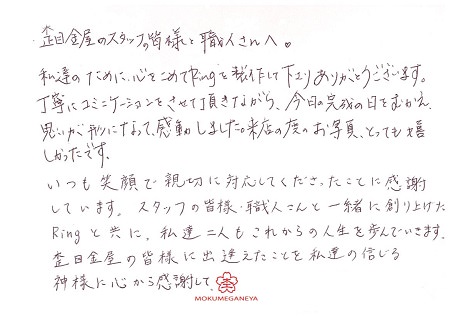 杢目金屋のスタッフの皆様と職人さんへ。
私達のために、心をこめてRingを製作して下さりありがとうございます。
丁寧にコミニケーションをさせて頂きながら、今日の完成の日をむかえ、
思いが形になって、感動しました。来店の度のお写真、とっても嬉
しかったです。
いつも笑顔で親切に対応してくださったことに感謝
しています。スタッフの皆様・職人さんと一緒に創り上げた
Ringと共に、私達二人もこれからの人生を歩んでいきます。
杢目金屋の皆様に出逢えたことを私達の信じる
神様に心から感謝して。
MOKUMEGANEYA